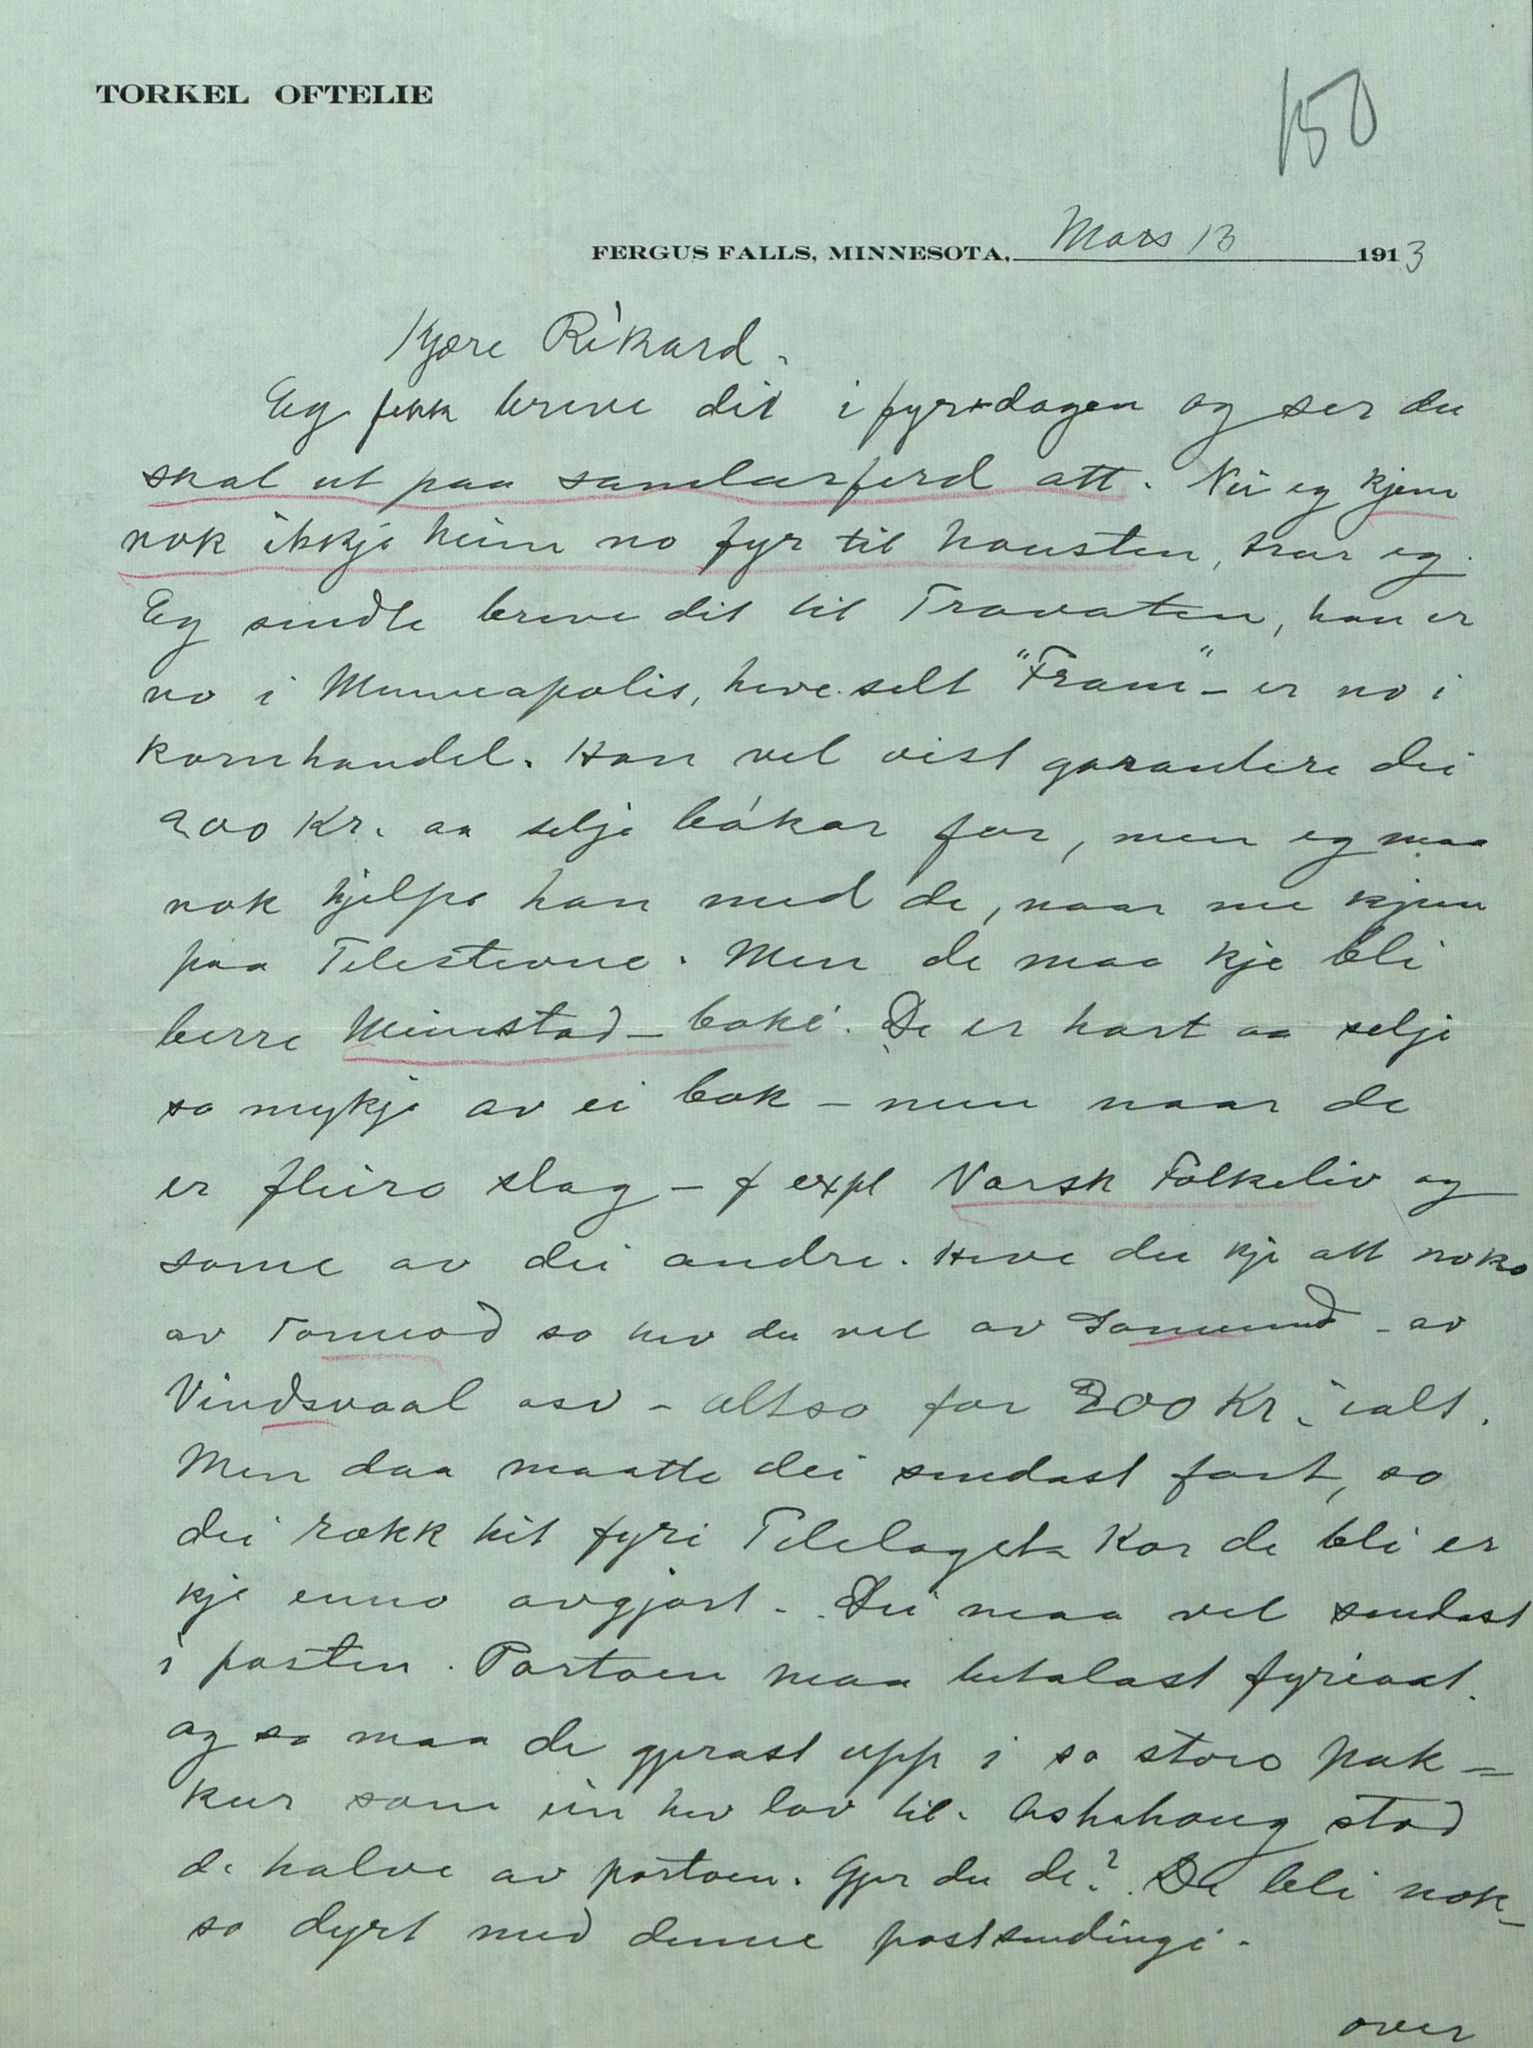 TORKEL OFTELIE
150
FERGUS FALLS, MINNESOTA, Mars 13 1913
Kjære Rikard.
Eg fekk breve dit i fyrdagen og ser du
skal ut paa samlarferd att. Nei eg kjem
nok ikkje heim no fyr til hausten, trur eg.
Eg sendte breve dit til Trovaten, han er
no i Minneapolis, heve selt "Fram" - er no i
kornhandel. Han vel vist garantere dei
200 Kr. aa selje bókar for, men eg maa
nok hjelpe han med de, naar me kjem
paa Telestevne. Men de maa kje bli
berre Heimstad-boki. De er hart aa selje
so mykje av ei bok - men naar de
er fleiro slag - f expl Norsk Folkeliv og
some av dei andre. Heve du kje att noko
av Tormod so hev du vel av - av
Vindsvaal osv - altso for 200 Kr. ialt.
Men daa maatte dei sendast fort, so
dei rækk hit fyri Telelaget. Kor de bli er
kje enno avgjort. Dei maa vel sendast
i posten. Portoen maa betalast fyriaat.
og so maa de gjerast upp i so storo pak=
kur som ein hev lov til. Askehaug stod
de halve av portoen. Gjer du de? De bli nok-
so dyrt med denne postsendingi.
over